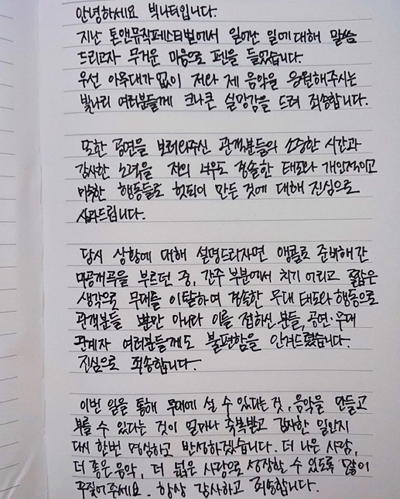 안녕하세요 빅나티입니다.
지난 톤앤뮤직페스티벌에서 일어난 일에 대해 말씀
드리고자 무거운 마음으로 펜을 들었습니다.
우선 아무대가 없이 저와 제 음악을 응원해주시는
빛나리 여러분들께 크나큰 실망감을 드려 죄송합니다.
또한 공연을 보러와주신 관객분들의 소중한 시간과
감사한 노력을 저의 너무도 경솔한 태도와 개인적이고
미숙한 행동들로 헛되이 만든 것에 대해 진심으로
사과드립니다.
당시 상황에 대해 설명드리자면 앵콜로 준비해간
미공개곡을 부르던 중, 간주 부분에서 치기 어리고 짧은
생각으로 무대를 이탈하여 경솔한 무대 태도와 행동으로
관객분들 뿐만 아니라 이를 접하신 분들, 공연·무대
관계자 여러분들께도 불편함을 안겨드렸습니다.
진심으로 죄송합니다.
이번 일을 통해 무대에 설 수 있다는 것, 음악을 만들고
부를 수 있다는 것이 얼마나 축복받고 감사한 일인지
다시 한번 명심하고 반성하겠습니다. 더 나은 사람,
더 좋은 음악, 더 넓은 사람으로 성장할 수 있도록 많이
꾸짖어주세요. 항상 감사하고 죄송합니다.